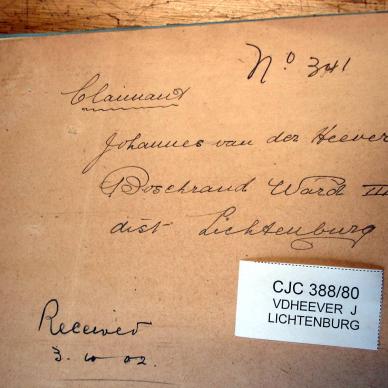 No 341
Claimant
Johannes van der Heever
Boschrand Ward III
dist Lichtenburg
CJC 388/80
VDHEEVER J
LICHTENBURG
Received
3. 10 02.